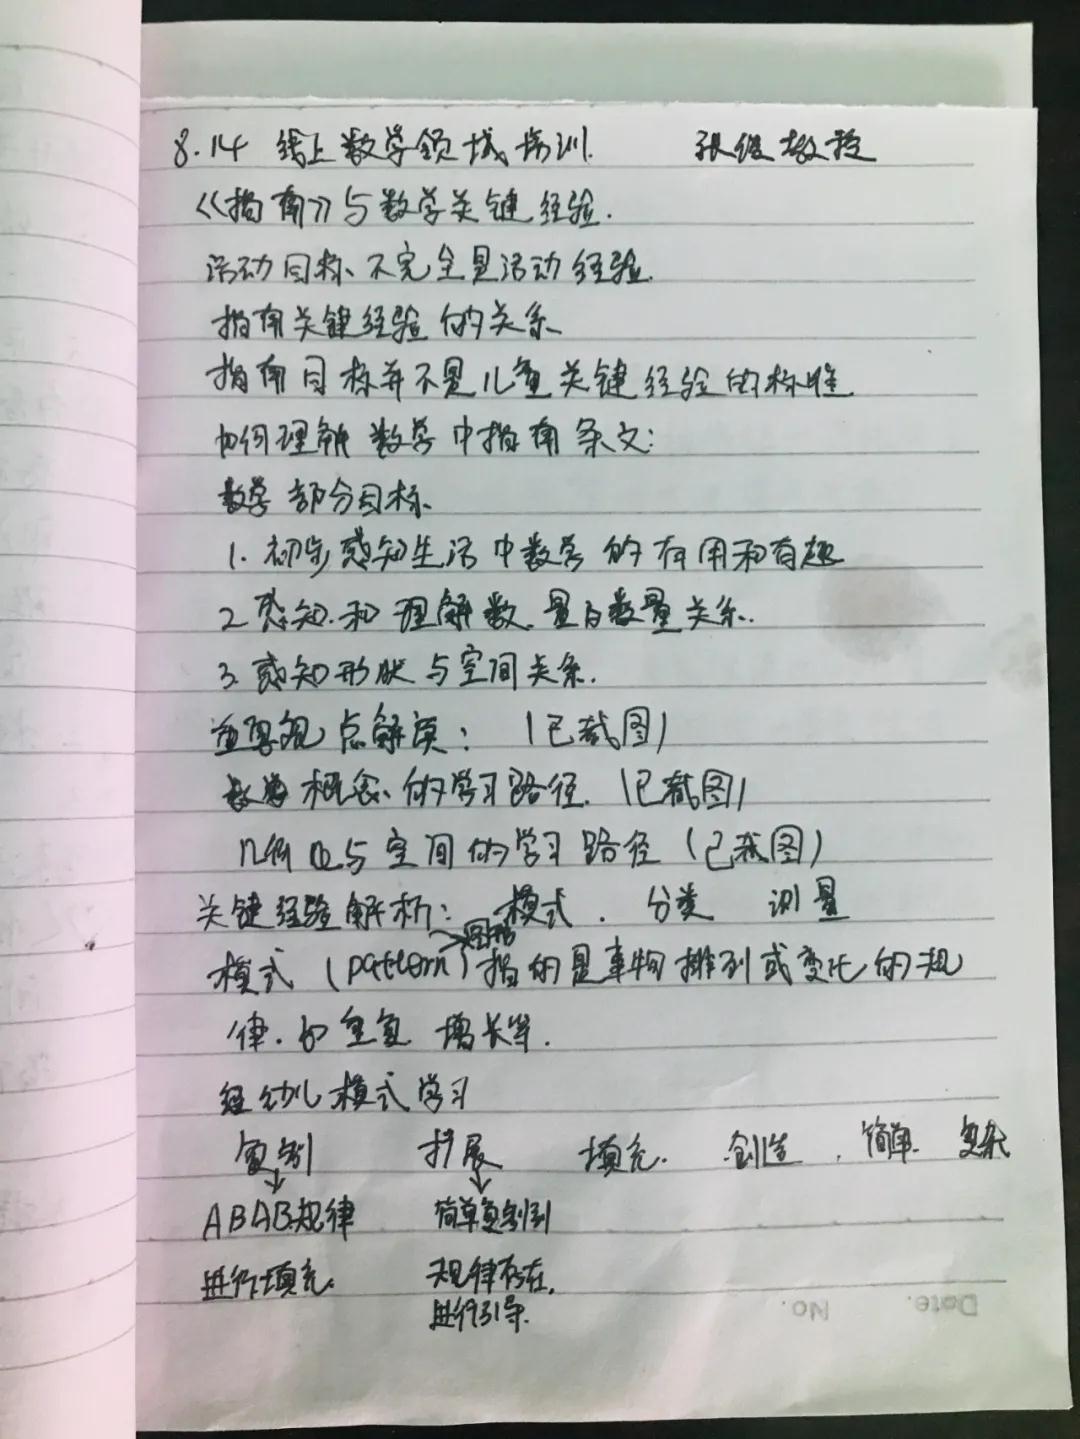 8.14 线上数学领域培训. 张俊教授
《指南》与数学关键经验.
活动目标、不完全是活动经验.
指南关键经验的关系
指南目标并不是儿童关键经验的标准.
如何理解数学中指南条文:
数学部分目标.
1. 初步感知生活中数学的有用和有趣
2 感知和理解数、量与数量关系.
3. 感知形状与空间关系.
观点解读: (已截图)
数学概念的学习路径. (已截图)
几何与空间的学习路径 (已截图)
关键经验解析: 模式. 分类 测量
模式 (pattern) 指的是事物排列或变化的规
律. 如重复 增长等.
幼儿模式学习
复制 扩展 填充. 创造. 简单. 复杂
ABAB规律 简单复制到
进行填充. 规律存在,
进行引导.
Date. No.